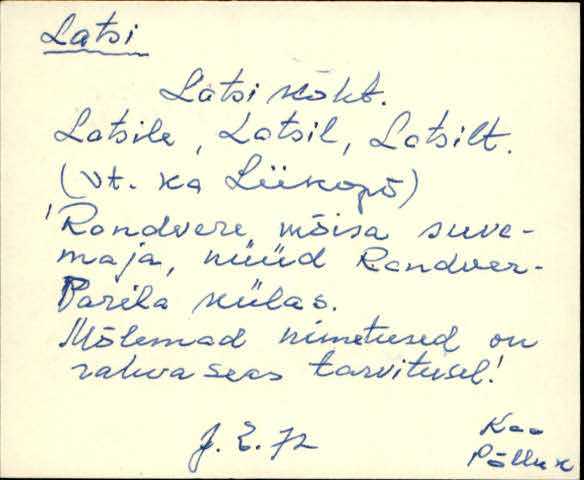 Latsi
Latsi kõht.
Latsile, Latsil, Latsilt.
(vt. ka Liikopõ)
'Randvere mõisa suve-
maja, nüüd Randver-
Parila külas.
Mõlemad nimetused on
rahva seas tarvitusel!
J. E. 72
Kaa